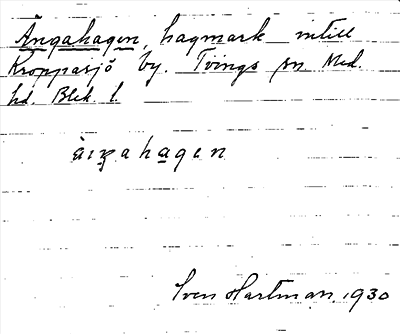 Ängahagen, hagmark intill
Kroppasjö by. Tvings sn Med.
hd. Blek. l.
äŋahagen
Sven Hartman 1930